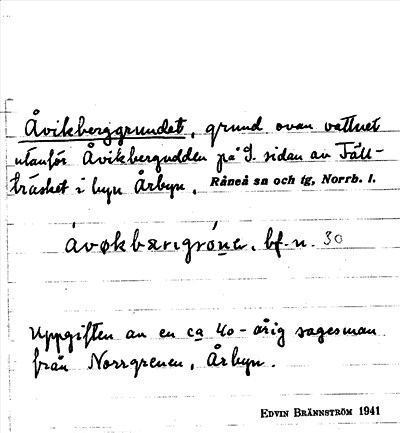 Åvikberggrundet, grund ovan vattnet
utanför Åvikbergudden på S. sidan av Fäll-
träsket i byn Årbyn. Råneå sn och tg, Norrb. l.
åvøkbærigrone. bf. n. 30
Uppgiften av en ca 40-årig sagesman
från Norrgrenen, Årbyn.
EDVIN BRÄNNSTRÖM 1941